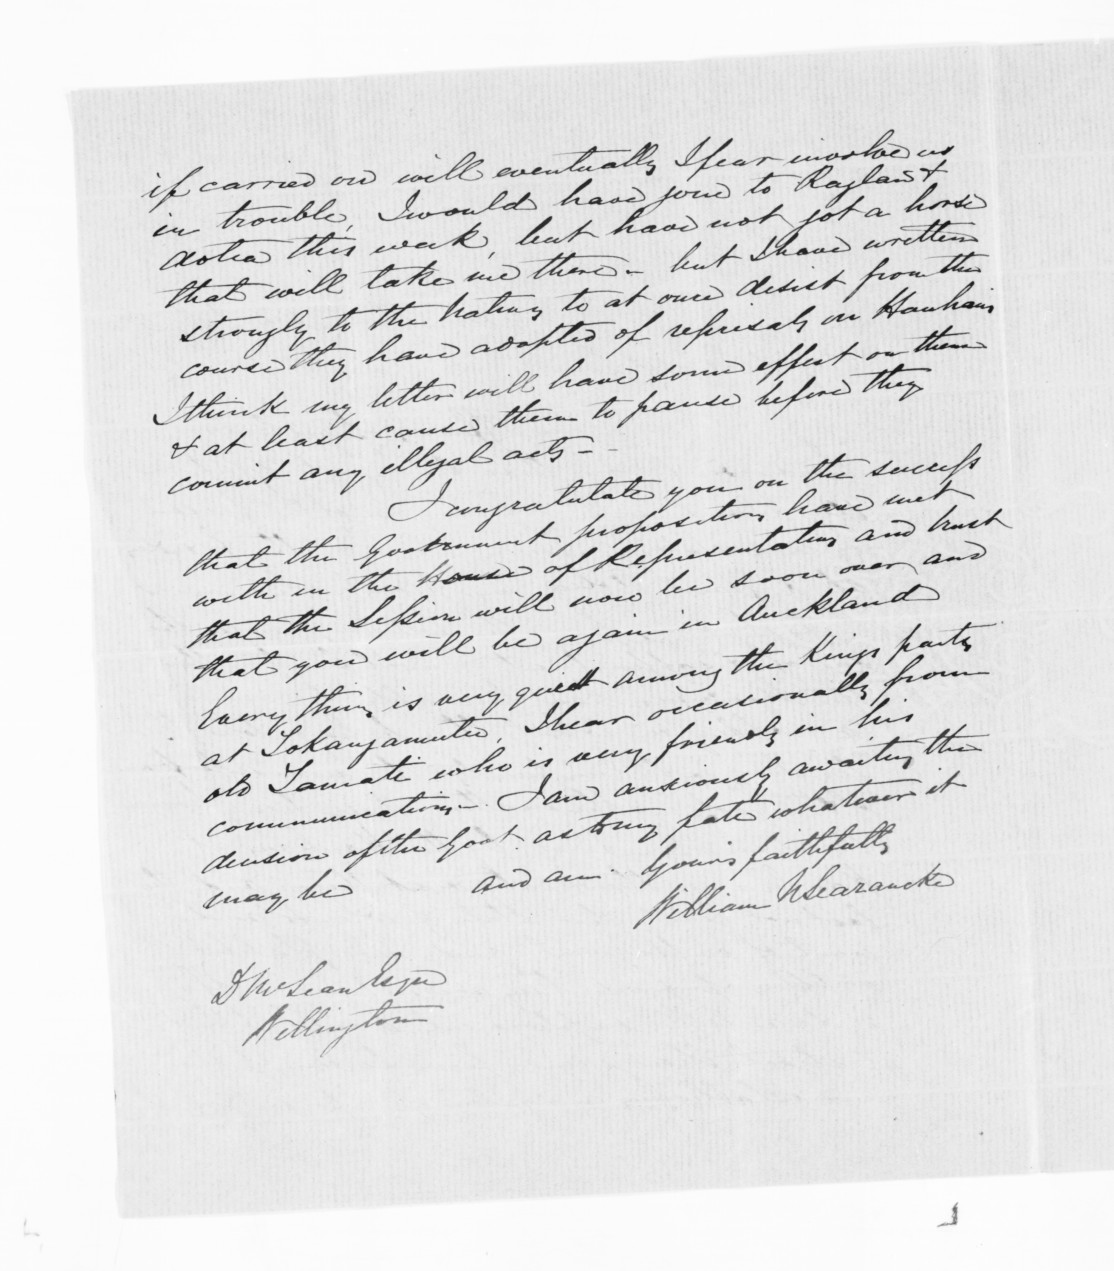 if carried on will eventually I fear involve us
in trouble, I would have gone to Raglan &
Aotea this week, but have not got a horse
that will take me there - but I have written
strongly to the Natives to at once desist from the
course they have adopted of reprisals on Hauhaus
I think my letter will have some effect on them
& at least cause them to pause before they
commit any illegal acts -
I congratulate you on the success
that the Government propositions have met
with in the House of Representatives and trust
that the Session will now be soon over and
that you will be again in Auckland
Everything is very quiet among the Kings party
at Tokangamutu, I hear occasionally from
old Tamati who is very friendly in his
communications - I am anxiously awaiting the
decision of the Govt. as to my fate whatever it
may be and am Yours faithfully
William N Searancke
D McLean Esqre
Wellington